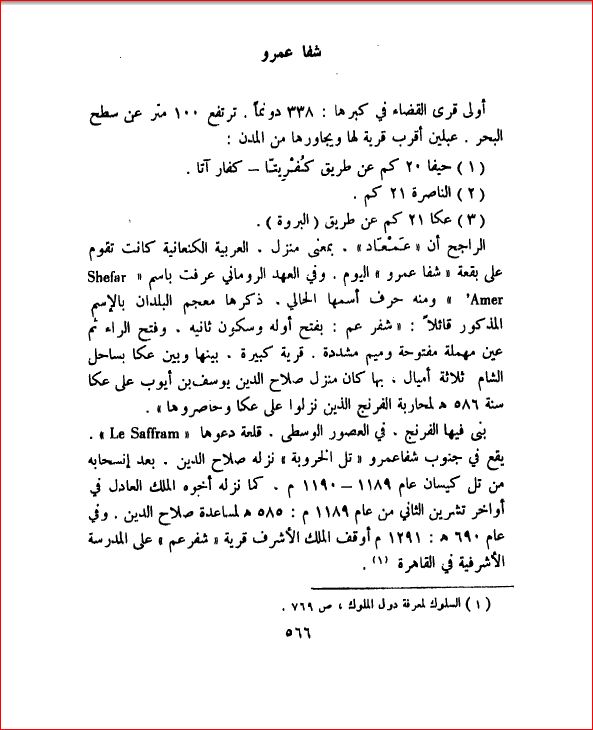 شفا عمرو
أولى قرى القضاء في كبرها : ٣٣٨ دونماً . ترتفع ١٠٠ متر عن سطح
البحر . عبلين أقرب قرية لها ويجاورها من المدن :
( ١ ) حيفا ٢٠ كم عن طريق كُفْرِيتّا – كفار آتا .
( ٢ ) الناصرة ٢١ كم .
( ٣ ) عكا ٢١ كم عن طريق ( البروة ) .
الراجح أن « عَمْعَاد » . بمعنى منزل . العربية الكنعانية كانت تقوم
على بقعة « شفا عمرو » اليوم . وفي العهد الروماني عرفت باسم « Shefar
Amer' » ومنه حرف أسمها الحالي . ذكرها معجم البلدان بالإسم
المذكور قائلاً : « شفر عم : بفتح أوله وسكون ثانيه . وفتح الراء ثم
عين مهملة مفتوحة وميم مشددة . قرية كبيرة . بينها وبين عكا بساحل
الشام ثلاثة أميال ، بها كان منزل صلاح الدين يوسف بن أيوب على عكا
سنة ٥٨٦ ه لمحاربة الفرنج الذين نزلوا على عكا وحاصروها » .
بنى فيها الفرنج . في العصور الوسطى . قلعة دعوها « Le Saffram » .
يقع في جنوب شفاعمرو « تل الخروبة » نزله صلاح الدين . بعد إنسحابه
من تل كيسان عام ١١٨٩ – ١١٩٠ م . كما نزله أخوه الملك العادل في
أواخر تشرين الثاني من عام ١١٨٩ م : ٥٨٥ ه لمساعدة صلاح الدين . وفي
عام ٦٩٠ ه : ١٢٩١ م أوقف الملك الأشرف قرية « شفرعم » على المدرسة
الأشرفية في القاهرة (١) .
( ١ ) السلوك لمعرفة دول الملوك ، ص ٧٦٩ .
٥٦٦